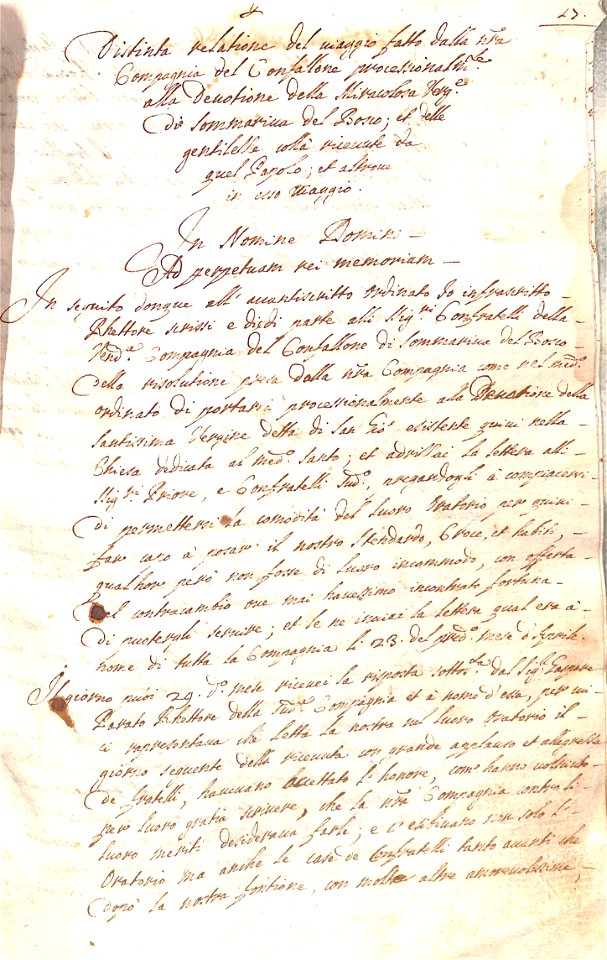 23.
Distinta relatione del viaggio fatto dalla nra
Compagnia del Confallone processionalmte
alla Devotione della Miracolosa Verge
di Sommariva del Bosco; et delle
gentilesse collà ricevute da
quel Popolo; et altrove
in esso viaggio.
In Nomine Domini –
Ad perpetuam rei memoriam –
In seguito donque all' avantiscritto ordinato Io infrascritto –
Rhettore scrissi e diedi parte alli Sigri Confratelli della
Venda Compagnia del Confallone di Sommariva del Bosco
della risolutione presa dalla nra Compagnia come nel medo
ordinato di portarsi processionalmente alla Devotione della
santissima Vergine detta di San Gio esistente quivi nella
Chiesa dedicata al medo Santo; et adrissai la lettera alli
Sigri Priore, e Confratelli sudi, pregandogli à compiacersi
di permettersi la comodità del luoro Oratorio per quivi
far capo à posar il nostro Stendardo, Croce, et habiti,
qualhor però non fosse di luoro incommodo, con offerta
del contracambio ove mai havessimo incontrato fortuna
di puotergli servire; et se ne inviai la lettera qual era à
nome di tutta la Compagnia li 23. del predo mese d'Aprile.
Il giorno puoi 29. do mese ricevei la risposta sottota dal Sigr Gaspare
Parato Rhettore della suda Compagnia et à nome d'essa, per cui
ci rapresentava che letta la nostra nel luoro Oratorio il
giorno seguente della ricevuta con grande applauso et allegressa
de fratelli, havevano accettato l'honore, come hanno volsuto
per luoro gratia scrivere, che la nra Compagnia contro li
luoro meriti desiderava farle; e c'essibivano non solo l'
Oratorio ma anche le case de Confratelli tanto avanti che
doppo la nostra fontione, con molte altre amorevolissime,